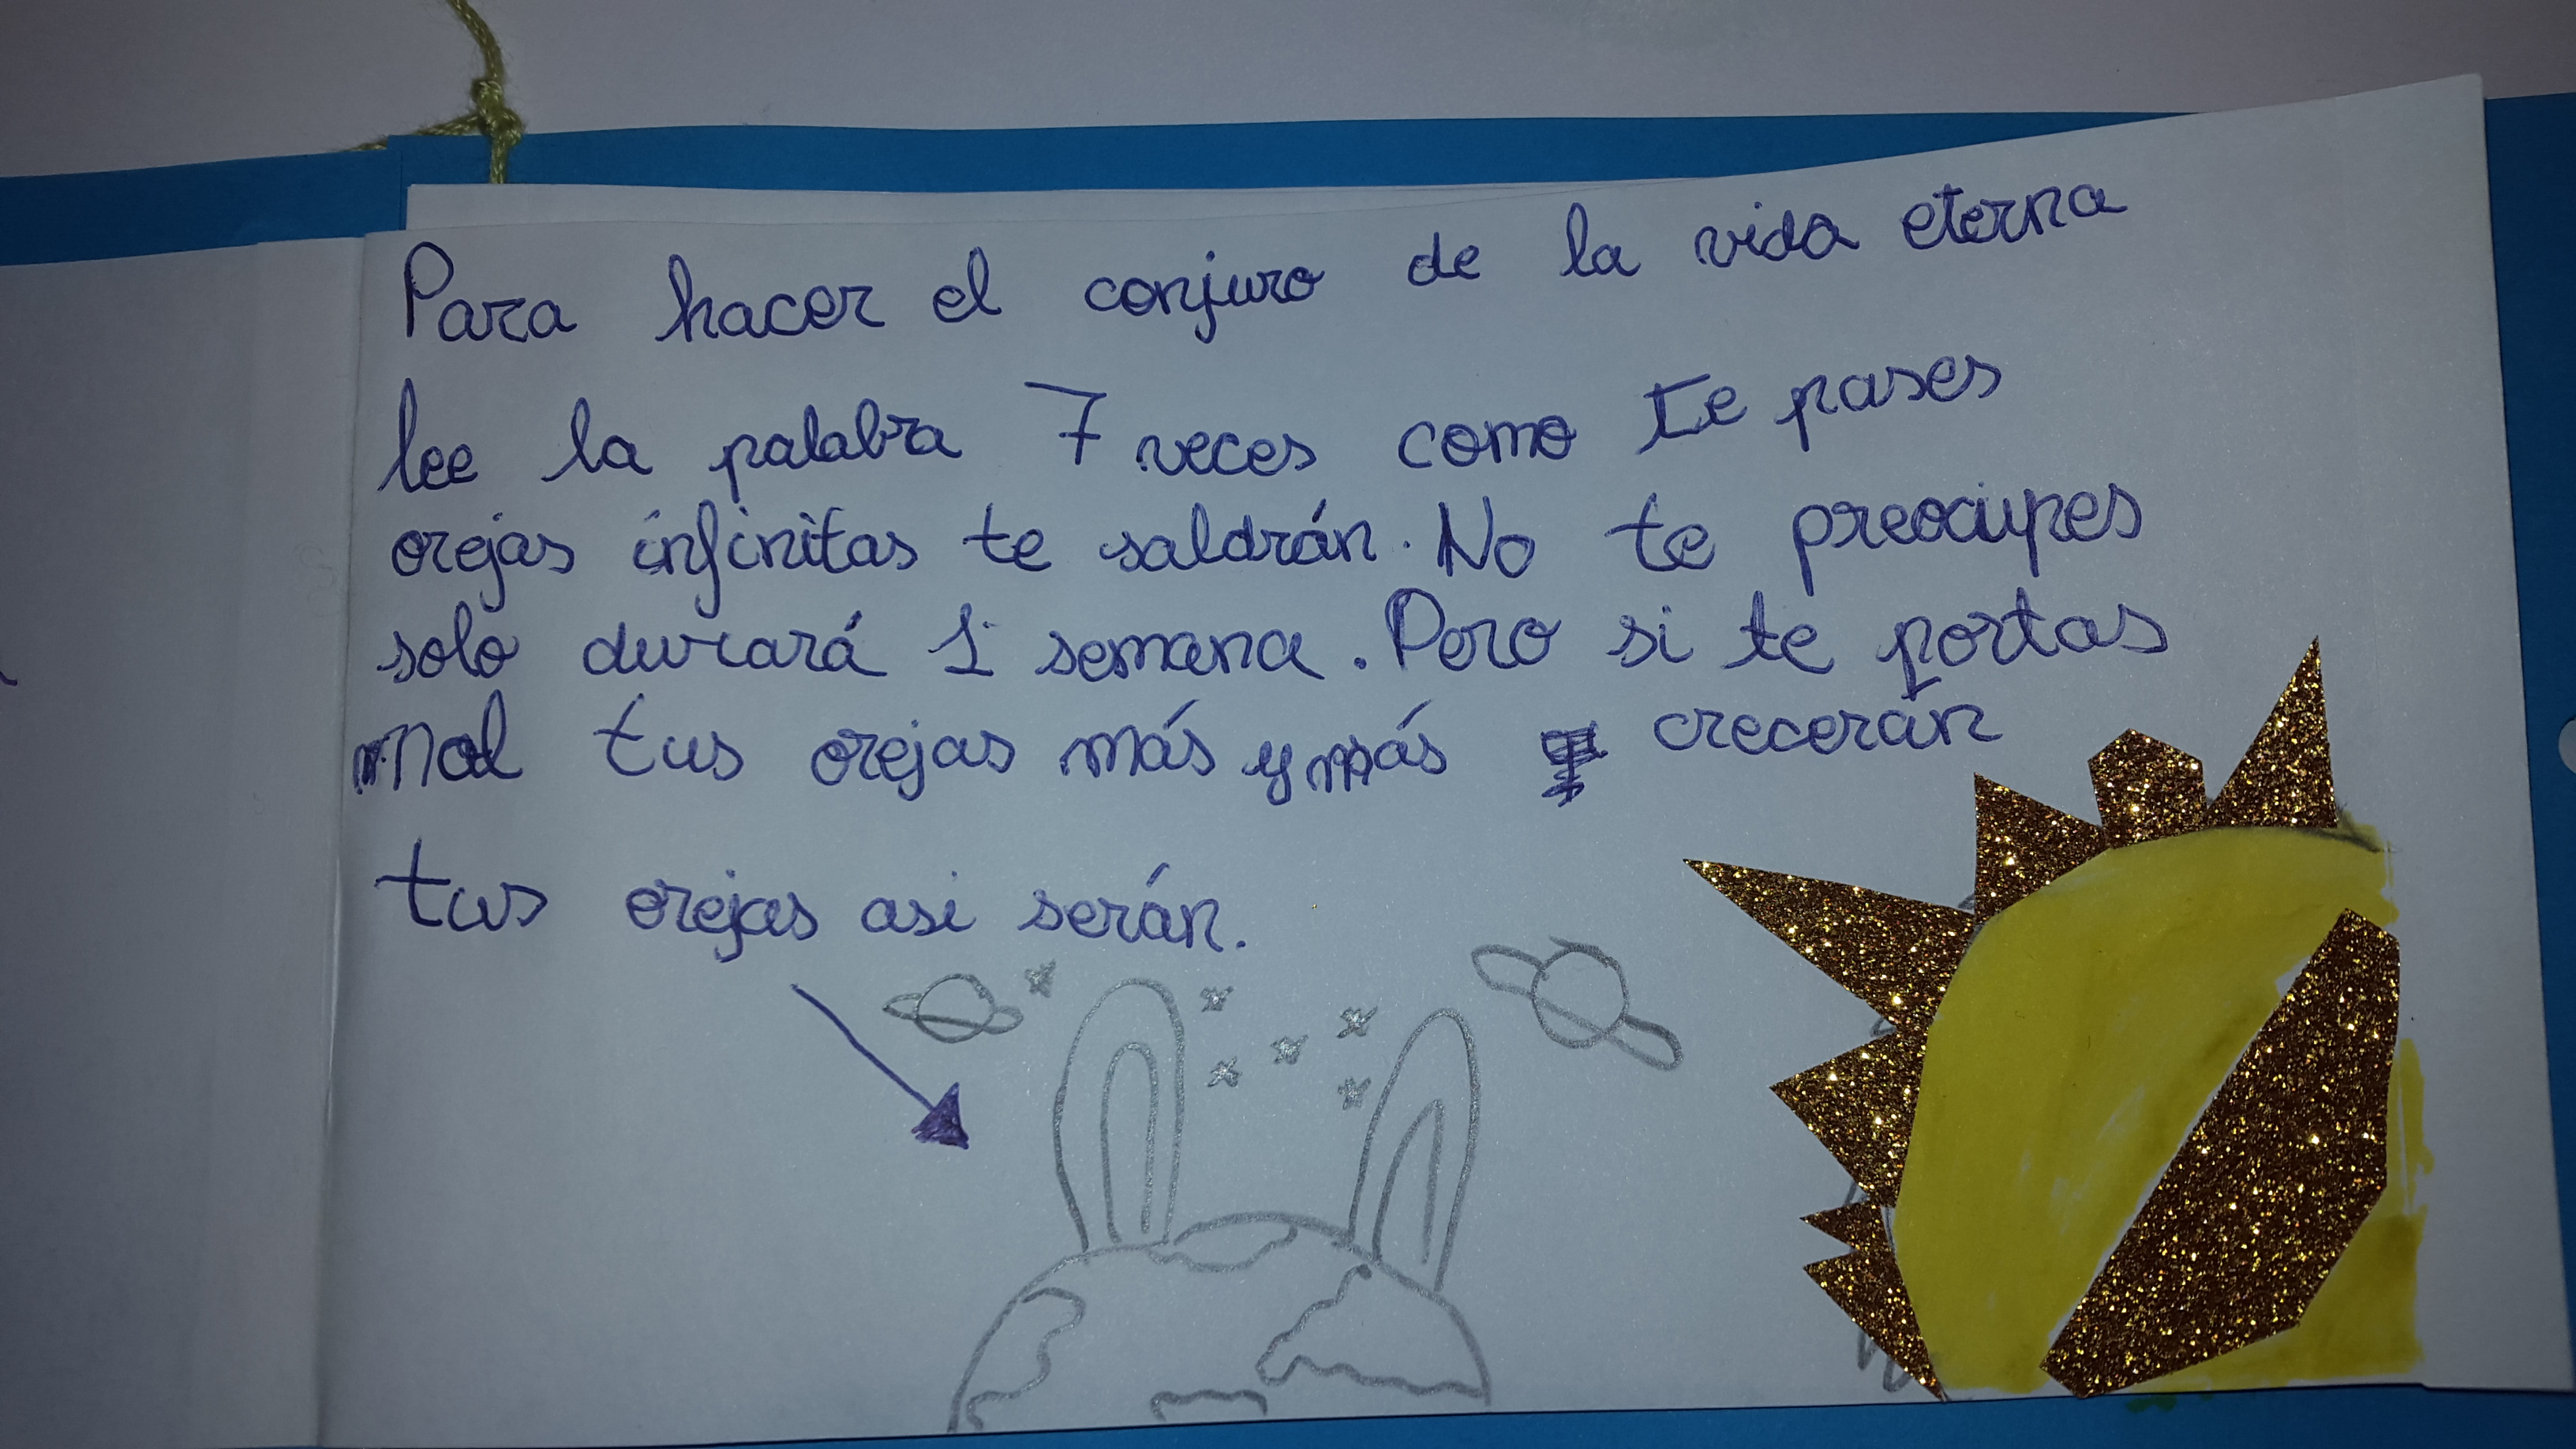 Para hacer el conjuro de la vida eterna
lee la palabra 7 veces como te pases
orejas infinitas te saldrán. No te preocupes
solo durará 1 semana. Pero si te portas
mal tus orejas más y más crecerán
tus orejas asi serán.